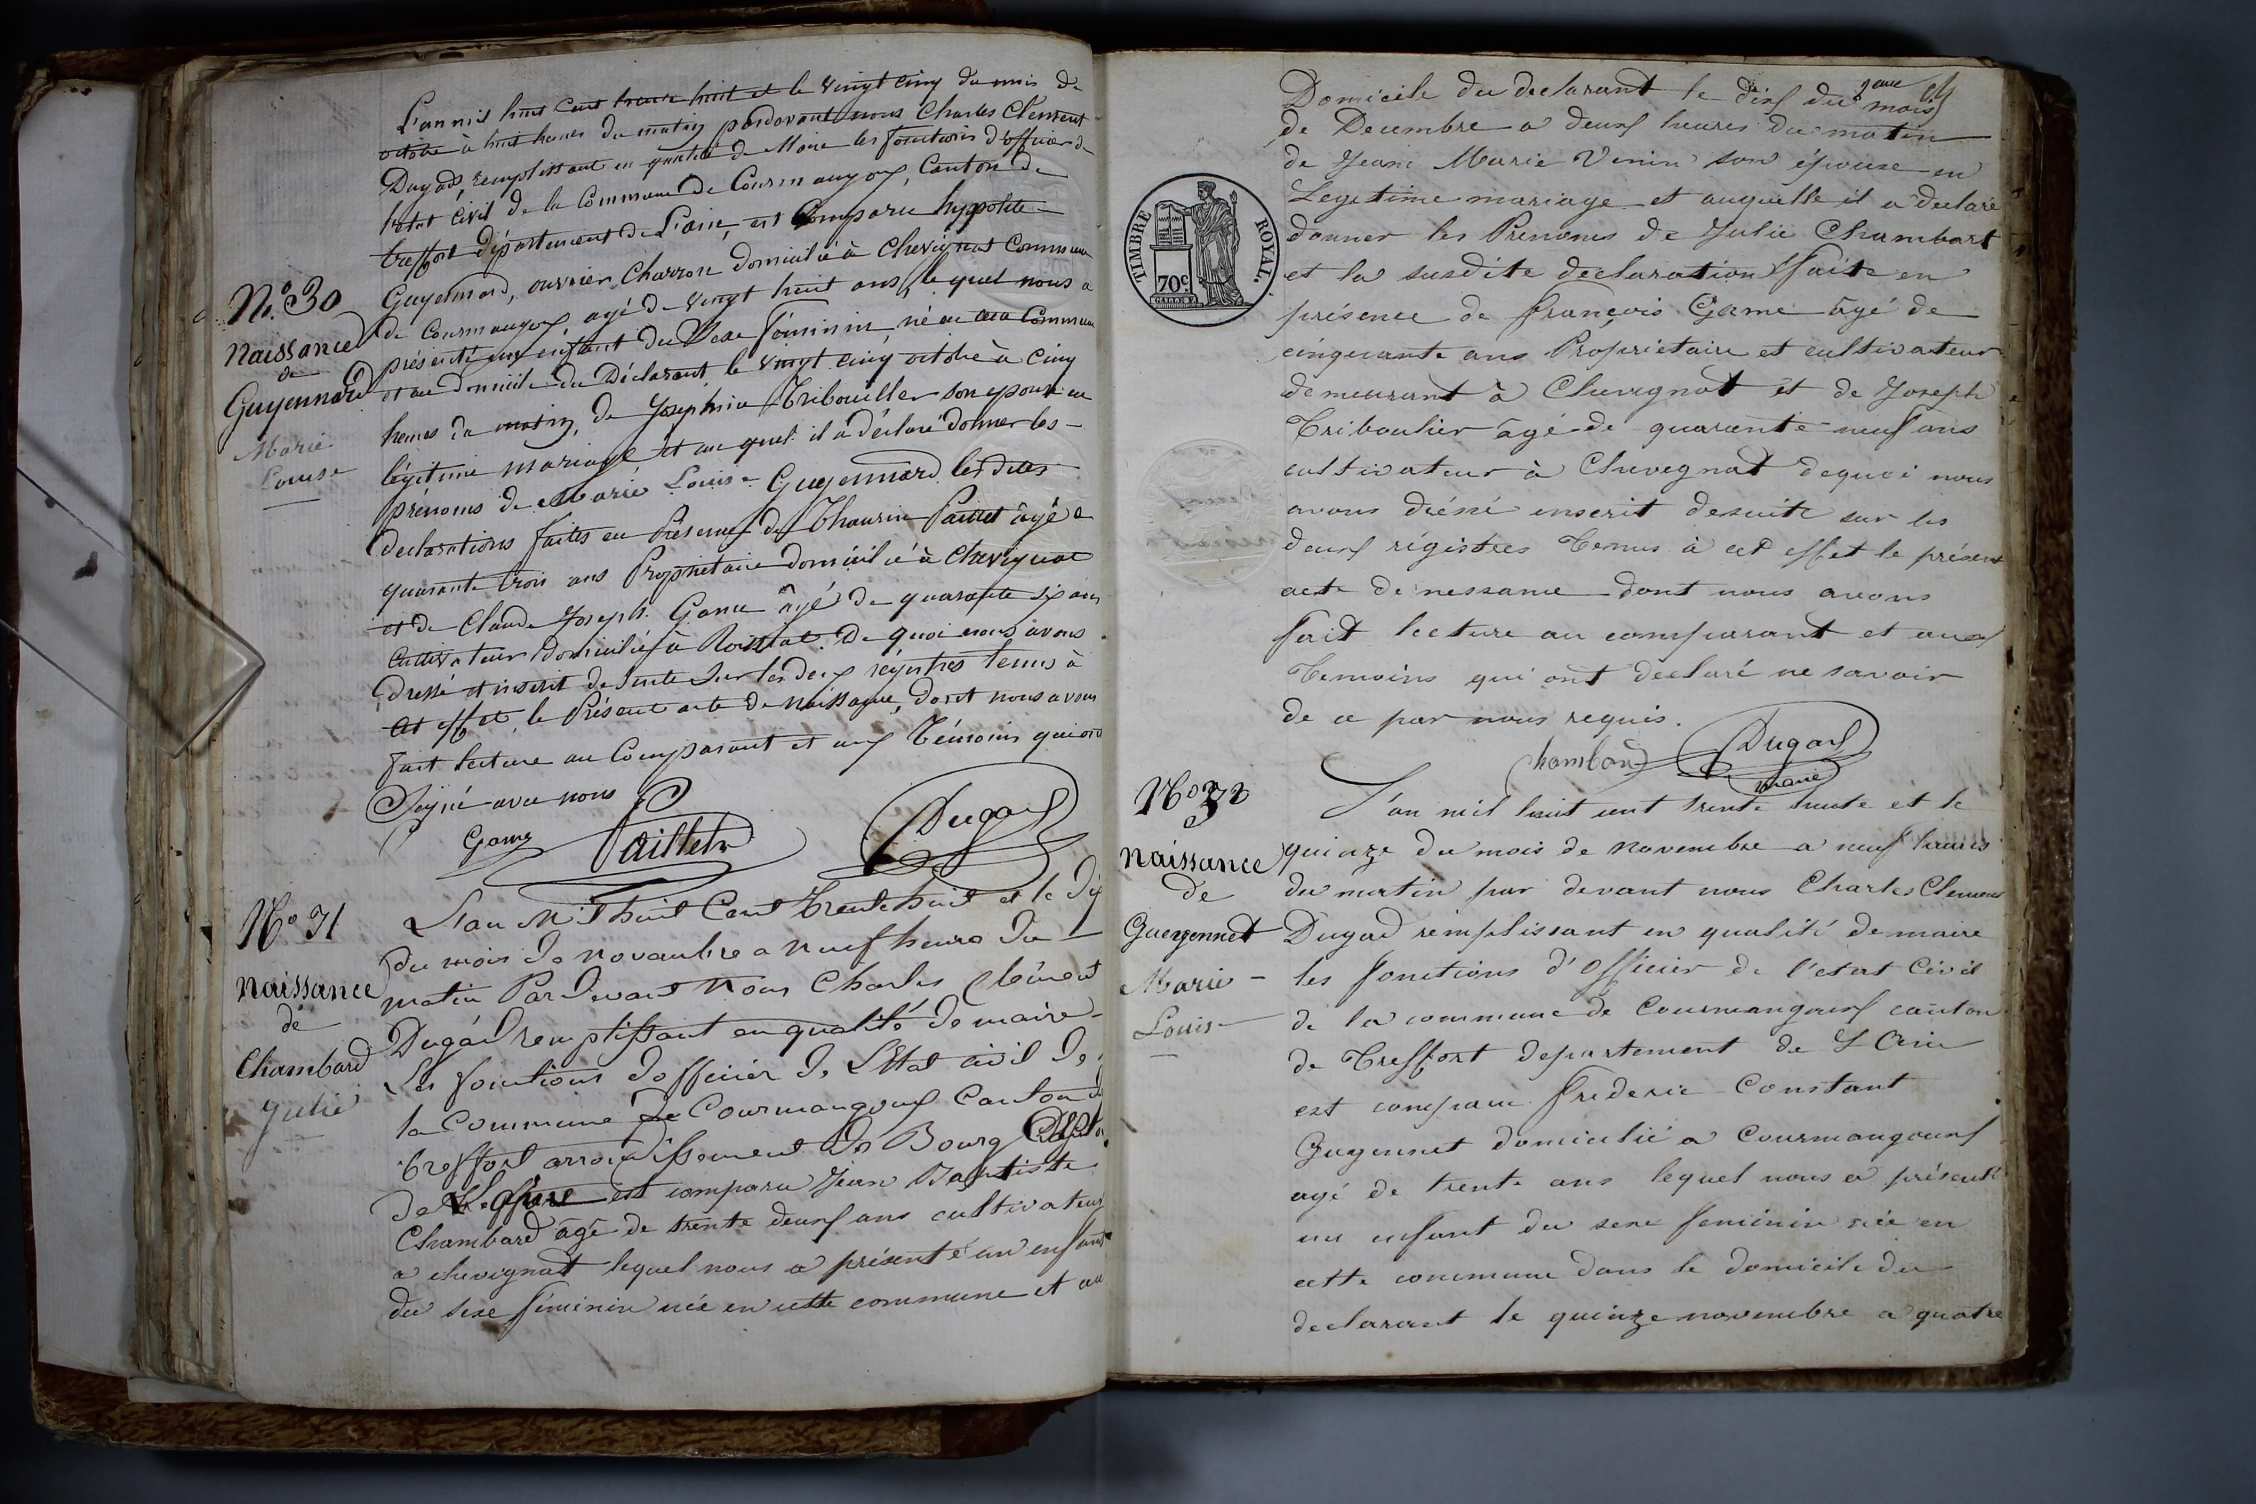 L'an mil huit cent trente huit et le vingt cinq du mois de
octobre à huit heures du matin pardevant nous Charles Clement
Dugad, remplissant en qualité de Maire les fonctions d'officier de
l'état civil de la Commune de Courmangoux, Canton de
treffort département de L'ain, est Comparu hyppolite
Guyennard, ouvrier Charron domicilié à Chevignat Commune
de Courmangoux, agé de vingt huit ans, le quel nous a
présenté un enfant du Sexe féminin, né en cette Commune
et au domicile du Déclarant, le vingt cinq octobre à cinq
heures du matin, de Josephine Tribouiller son epouse en
légitime mariage et au quel il a déclaré donner les
prénoms de Marie Louise Guyennard les dites
declarations faites en Présence de Thaurin Paillet âgé de
quarante trois ans Propriétaire domicilié à Chevignat
et de Claude Joseph Game âgé de quarante six ans
Cultivateur domicilié à Roissiat. De quoi nous avons
Dressé et inscrit de suite Sur les deux régistres tenus à
cet effet, le Présent acte de Naissance, dont nous avons
fait lecture au Comparant et aux Témoins qui ont
Signé avec nous
Game Paillet Dugad
No. 30
Naissance
de
Guyennard
Marie
Louise
No 31
Naissance
de
Chambard
Julie
L'an Mil huit Cent Trente huit et le Dix
du mois de novembre a neuf heures du
matin Pardevant Nous Charles Clément
Dugad remplissant en qualité de maire
Les fonctions d'officier de L'Etat civil de
la Commune de Courmangoux Canton de
treffort arrondissement de Bourg
est comparu Jean Baptiste
Chambard âgé de trente deux ans cultivateur
a chevignat lequel nous a présenté un enfant
du sexe féminin née en cette commune et au
Domicile du declarant le dix du mois
de Decembre a deux heures du matin
de Jeane Marie Venin son épouse en
Legitime mariage et auquelle il a declaré
donner les Prenoms de Julie Chambart
et la susdite declaration faite en
présence de françois Game âgé de
cinquante ans Propriétaire et cultivateur
demeurant à Chevignat et de Joseph
Triboulier âgé de quarante neuf ans
cultivateur à Chevegnat dequoi nous
avons inscrit desuite sur les
deux régistres tenus à cet effet le présent
acte de nessance dont nous avons
fait lecture au comparant et aux
Temoins qui ont declaré ne savoir
de ce par nous requis.
Chambard Dugad
maire
TIMBRE ROYAL.
70c
No 32
Naissance
de
Gueyennet
Marie
Louise
L'an mil huit cent trente huite et le
quinze du mois de novembre a neuf heures
du matin par devant nous Charles Clement
Dugad remplissant en qualité de maire
les fonctions d'officier de l'etat Civil
de la commune de Courmangoux canton
de Treffort departement de L'Ain
est comparu frideric Constant
Guyennet domicilié a Courmangoux
agé de trente ans lequel nous a présenté
un enfant du sexe feminin née en
cette commune dans le domicile du
declarant le quinze novembre a quatre